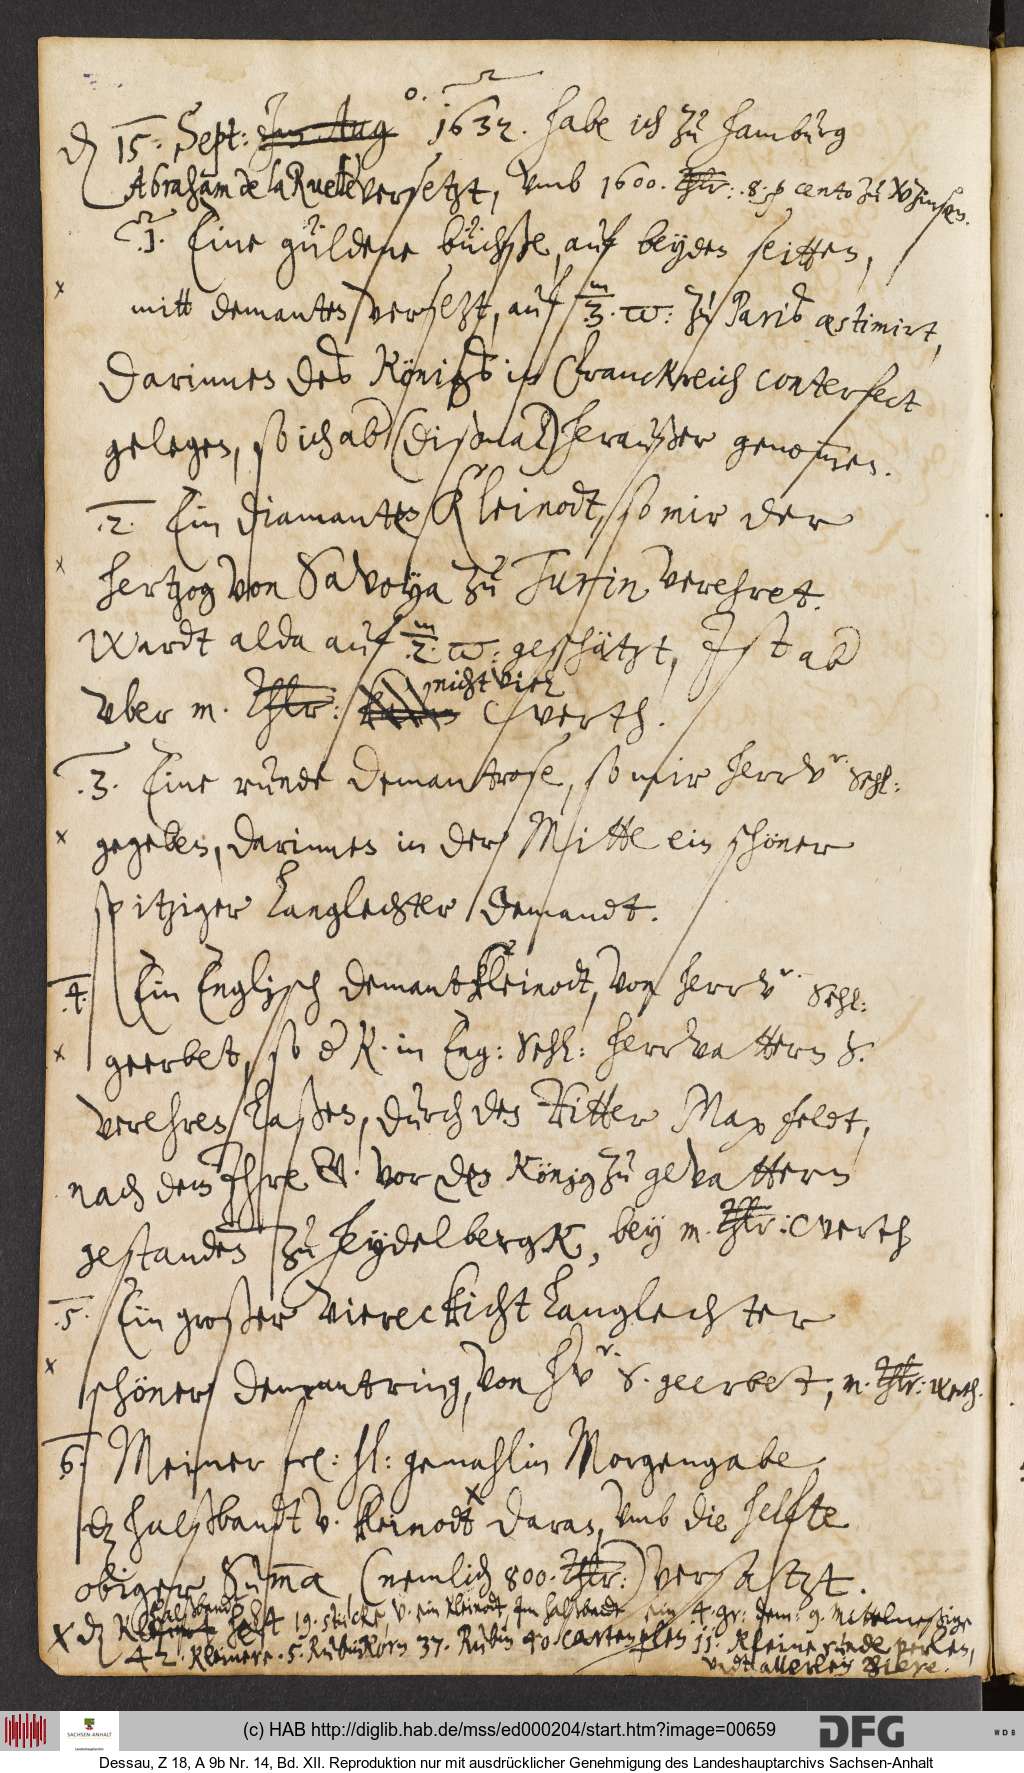 den 15. Sept: Im Aug o. 1632. habe ich zu Hamburg
Abraham de la Ruelle versetzt, vmb 1600. Thlr: 8. p cento zu Zinsen.
.1. Eine güldene büchße, auf beyden seitten,
x mitt demanten versetzt, auf m/3. zu Paris æstimirt,
Darinnen des Königs in Franckreich conterfect
gelegen, so ich ab (dißmal) heraußer genommen.
.2. Ein diamanten Kleinodt, so mir der
x Hertzog von Savoya zu Turin verehret.
Wardt alda auf m/2. geschätzt, Ist ab
vber m. Thlr: nicht viel werth.
.3. Eine runde Demantrose, so mir herrv. Sehl:
x gegeben, darinnen in der Mitte ein schöner
spitziger Langlechter demandt.
.4. Ein Englisch demantkleinodt, von herrv. Sehl:
x geerbet, so d K. in Eng: Sehl: herrvattern S.
verehren laßen, durch den Ritter Maxfeldt,
nach dem Ihre G. vor den König zu gevattern
gestanden zu heydelbergk, bey m. Thlr: werth
.5. Ein großer viereckicht Langlechter
x schöner demantring, von hv. S. geerbet, m. Thlr: werth.
6. Meiner frl: hl: gemahlin Morgengabe
dz halßbandt v. kleinodt x daran, vmb die helfte
obiger Summa (nemlich 800. Thlr:) versatzt.
x d halßbandt helt 19. stücke, v. ein kleinodt, Im halßbandt ein 4. gr: dem: 9. Mittelmeßige
42. kleinere. 5. Rubinkorn 37. Rubin 40 Carten perlen 11. kleine runde perlen,
vndt allerley Thiere.
(c) HAB http://diglib.hab.de/mss/ed000204/start.htm?image=00659
SACHSEN-ANHALT
Landeshauptarchiv
DFG
WDB
Dessau, Z 18, A 9b Nr. 14, Bd. XII. Reproduktion nur mit ausdrücklicher Genehmigung des Landeshauptarchivs Sachsen-Anhalt